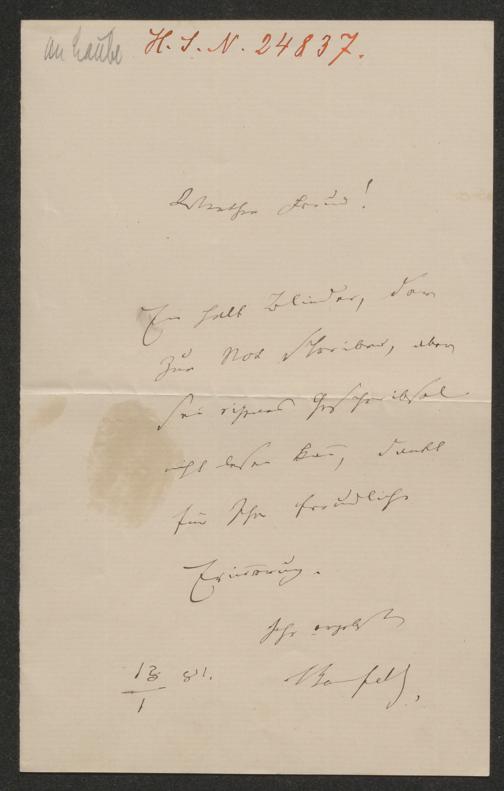 an Laube
H. I. N. 24837.
Werther Freund!
Ein halb Blinder, der
zur Not schreiben, aber
sein eigenes Geschreibsel
nicht lesen kann, dankt
für Ihre freundliche
Erinnerung.
Ihr ergebenster
13/1 81.